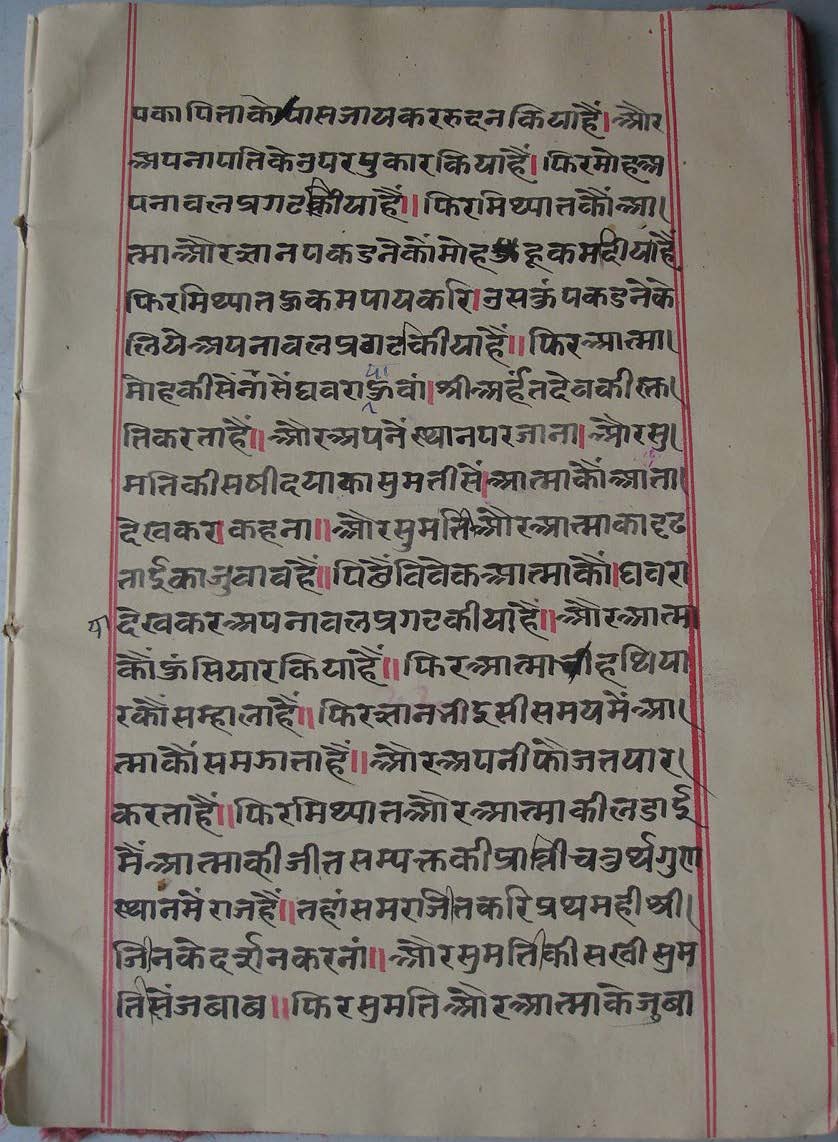 पका पिताके पास जायकर रुदन किया हैं। और
अपना पतिके उपर पुकार किया हैं। फिर मोह अ
पना वल प्रगट कीया हैं॥ फिर मिथ्यातकौं आ।
त्मा और ज्ञान पकडनेकौं मोह हूकम दीया हैं
फिर मिथ्यात हुकम पाय करि। उसकुं पकडनेके
लिये अपना वल प्रगट कीया हैं॥ फिर आत्मा।
मोहकी सेंनां सें घवराया हुवां। श्री अर्हंत देवकी भ्क।
क्ति करता हैं॥ और अपनें स्थान पर जाना। और सु।
मतिकी सषी दयाका सुमतीसें। आत्माकौं आंता।
देखकर कहना॥ और सुमति और आत्माका दृढ
ताईका जुवाव हैं॥ पिछैं विवेक आत्माकौं। घवरा
या देखकर अपना वल प्रगट कीया हैं॥ और आत्मा
कौं हुंसियार किया हैं॥ फिर आत्मा हथिया
रकौं सम्हाला हैं॥ फिर ज्ञान भी इसी समयमें आ।
त्माकौं समझाता हैं॥ और अपनी फौज तयार।
करता हैं॥ फिर मिथ्यात और आत्माकी लडाई
मैं आत्माकी जीत सम्यक्तकी प्राप्ती चतुर्थ गुण
स्थानमें राज हैं॥ तहां समर जीतकरि प्रथमही श्री।
जिनके दर्शन करनां॥ और सुमतिकी सखी सुम
तिसें जबाब॥ फिर सुमति और आत्माके जुबा